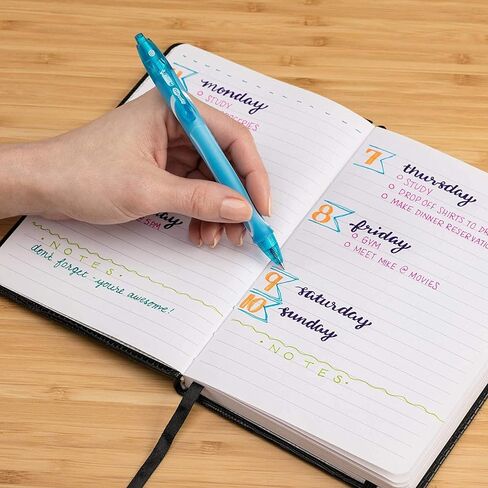 monday
STUDY
5PM
NOTES
don't forget - you're awesome!
7 thursday
STUDY
DROP OFF SHIRTS TO
MAKE DINNER RESERVATION
8 friday
GYM
MEET MIKE @ MOVIES
9 saturday
10 sunday
NOTES